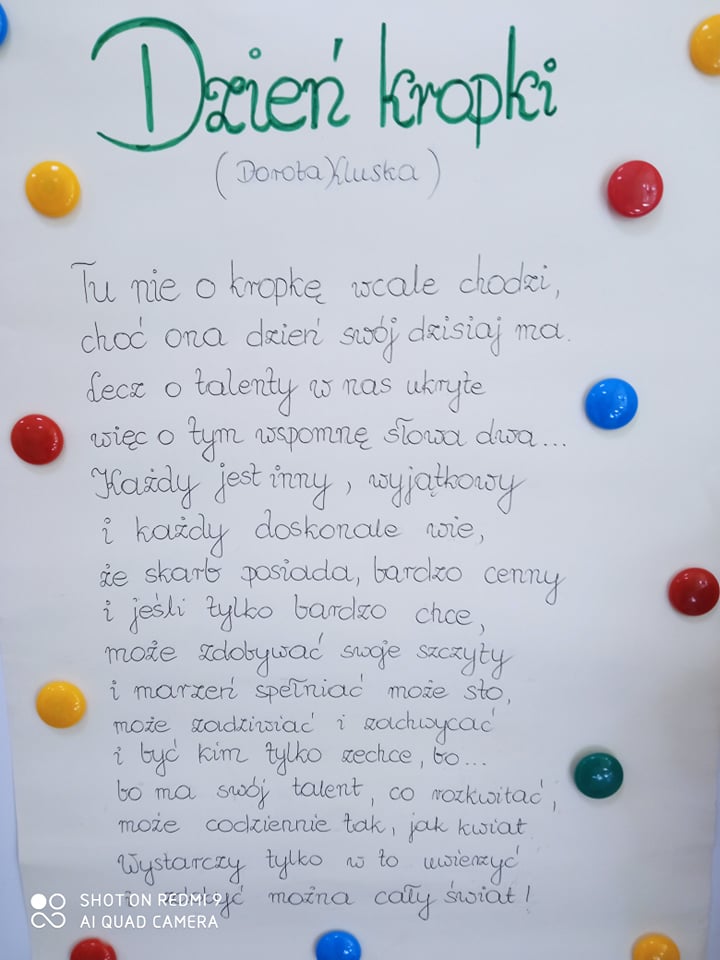 Dzień kropki
(Dorota Kluska)
Tu nie o kropkę wcale chodzi,
choć ona dzień swój dzisiaj ma.
Lecz o talenty w nas ukryte
więc o tym wspomnę słowa dwa...
Każdy jest inny, wyjątkowy
i każdy doskonale wie,
że skarb posiada, bardzo cenny
i jeśli tylko bardzo chce,
może zdobywać swoje szczyty
i marzeń spełniać może sto,
może zadziwiać i zachwycać
i być kim tylko zechce, bo...
bo ma swój talent, co rozkwitać,
może codziennie tak, jak kwiat.
Wystarczy tylko w to uwierzyć
i można cały świat!
SHOT ON REDMI 9
AI QUAD CAMERA